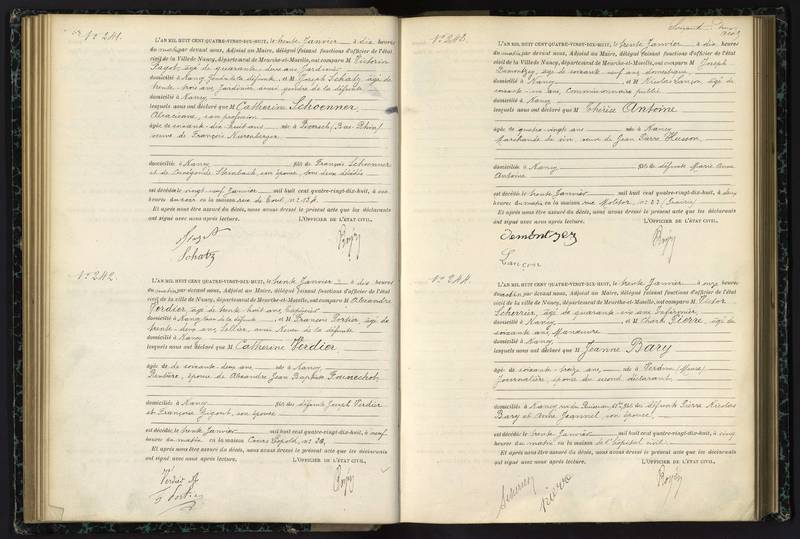 N° 241.
L'AN MIL HUIT CENT QUATRE-VINGT-DIX-HUIT, le trente Janvier à dix heures
du matin par devant nous, Adjoint au Maire, délégué faisant fonctions d'officier de l'état
civil de la Ville de Nancy, département de Meurthe-et-Moselle, ont comparu M Victorin
âgé de quarante-deux ans Jardinier
domicilié à Nancy, gendre de la défunte et M Joseph Schatz, âgé de
trente-trois ans Jardinier, aussi gendre de la défunte
domicilié à Nancy
lesquels nous ont déclaré que M Catherine Schoenner,
Alsacienne, sans profession
âgée de soixante-dix-huit ans née à (Bas-Rhin)
veuve de François Nurenberger
domiciliée à Nancy fille de François Schoenner
et de Cunégonde Steinbach, son épouse, tous deux décédés
est décédée le vingt-neuf Janvier mil huit cent quatre-vingt-dix-huit, à
heures du soir en la maison rue de Toul, n° 134.
Et après nous être assuré du décès, nous avons dressé le présent acte que les déclarants
ont signé avec nous après lecture. L'OFFICIER DE L'ÉTAT CIVIL,
Schatz
N° 242.
L'AN MIL HUIT CENT QUATRE-VINGT-DIX-HUIT, le trente Janvier à dix heures
du matin par devant nous, Adjoint au Maire, délégué faisant fonctions d'officier de l'état
civil de la ville de Nancy, département de Meurthe-et-Moselle, ont comparu M Alexandre
Verdier, âgé de trente-huit ans,
domicilié à Nancy, neveu de la défunte et M François Portier, âgé de
trente-deux ans, Sellier, aussi Neveu de la défunte
domicilié à Nancy
lesquels nous ont déclaré que M Catherine Verdier,
âgée de soixante-deux ans, née à Nancy
Rentière, épouse de Alexandre Jean Baptiste
domiciliée à Nancy fille des défunts Joseph Verdier
et Françoise Gigout, son épouse
est décédée le trente Janvier mil huit cent quatre-vingt-dix-huit, à neuf
heures du matin en la maison Cours Léopold, n° 28,
Et après nous être assuré du décès, nous avons dressé le présent acte que les déclarants
ont signé avec nous après lecture. L'OFFICIER DE L'ÉTAT CIVIL,
Verdier A
N° 243.
L'AN MIL HUIT CENT QUATRE-VINGT-DIX-HUIT, le trente Janvier à dix heures
du matin par devant nous, Adjoint au Maire, délégué faisant fonctions d'officier de l'état
civil de la Ville de Nancy, département de Meurthe-et-Moselle, ont comparu M Joseph
âgé de soixante-neuf ans, domestique
domicilié à Nancy et M Nicolas Lançon, âgé de
soixante ans, Commissionnaire public
domicilié à Nancy
lesquels nous ont déclaré que M Thérèse Antoine
âgée de quatre-vingts ans née à Nancy
Marchande de vin, veuve de Jean Pierre Husson,
domiciliée à Nancy fille de défunte Marie Anne
Antoine
est décédée le trente Janvier mil huit cent quatre-vingt-dix-huit, à deux
heures du matin en la maison rue Molitor, n° 22
Et après nous être assuré du décès, nous avons dressé le présent acte que les déclarants
ont signé avec nous après lecture. L'OFFICIER DE L'ÉTAT CIVIL,
Lançon
N° 244.
L'AN MIL HUIT CENT QUATRE-VINGT-DIX-HUIT, le trente Janvier à onze heures
du matin par devant nous, Adjoint au Maire, délégué faisant fonctions d'officier de l'état
civil de la ville de Nancy, département de Meurthe-et-Moselle, ont comparu M Victor
Scherrier, âgé de quarante-six ans Infirmier,
domicilié à Nancy et M Charles Pierre, âgé de
soixante ans, Manœuvre
domicilié à Nancy
lesquels nous ont déclaré que M Jeanne Bary
âgée de soixante-treize ans, née à Verdun (Meuse)
Journalière, épouse du second déclarant,
domiciliée à Nancy fille des défunts Pierre Nicolas
Bary et Anne Jeannel, son épouse,
est décédée le trente Janvier mil huit cent quatre-vingt-dix-huit, à cinq
heures du matin en la maison de l'hôpital civil
Et après nous être assuré du décès, nous avons dressé le présent acte que les déclarants
ont signé avec nous après lecture. L'OFFICIER DE L'ÉTAT CIVIL,